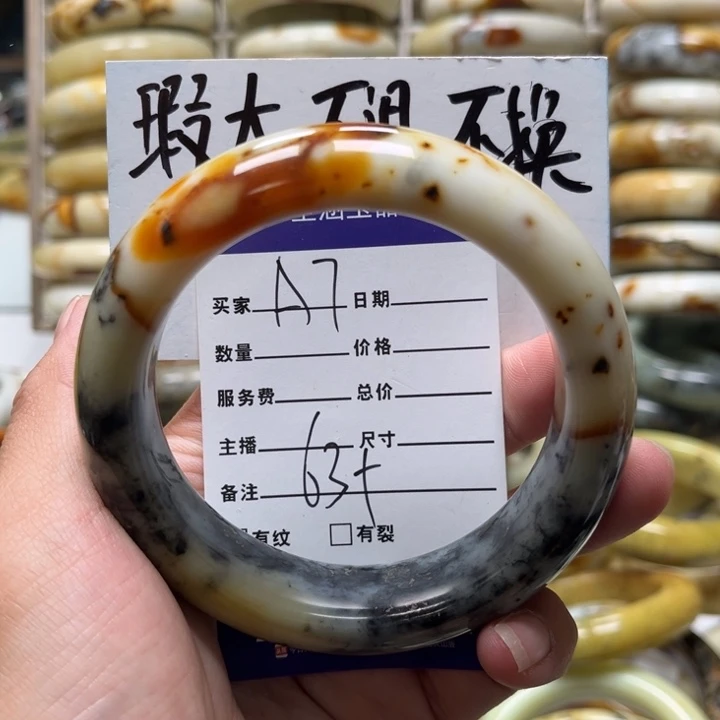 瑕大不退不换
买家 A7 日期
数量 价格
服务费 总价
主播 尺寸
备注 63+
有纹 □有裂